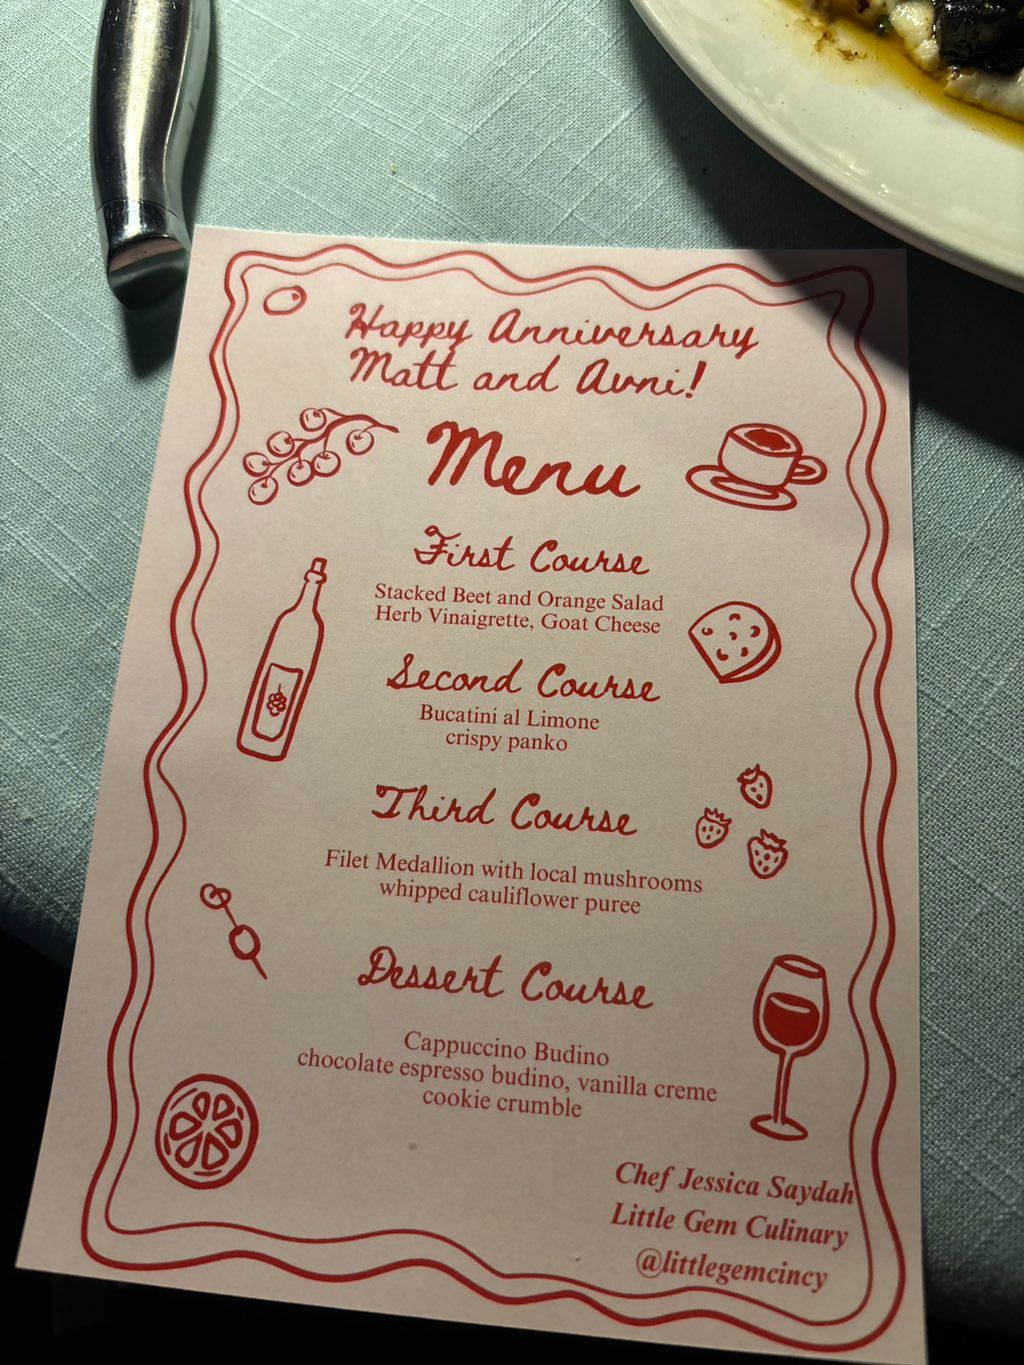 Happy Anniversary
Matt and Avni!
Menu
First Course
Stacked Beet and Orange Salad
Herb Vinaigrette, Goat Cheese
Second Course
Bucatini al Limone
crispy panko
Third Course
Filet Medallion with local mushrooms
whipped cauliflower puree
Dessert Course
Cappuccino Budino
chocolate espresso budino, vanilla creme
cookie crumble
Chef Jessica Saydah
Little Gem Culinary
@littlegemcincy